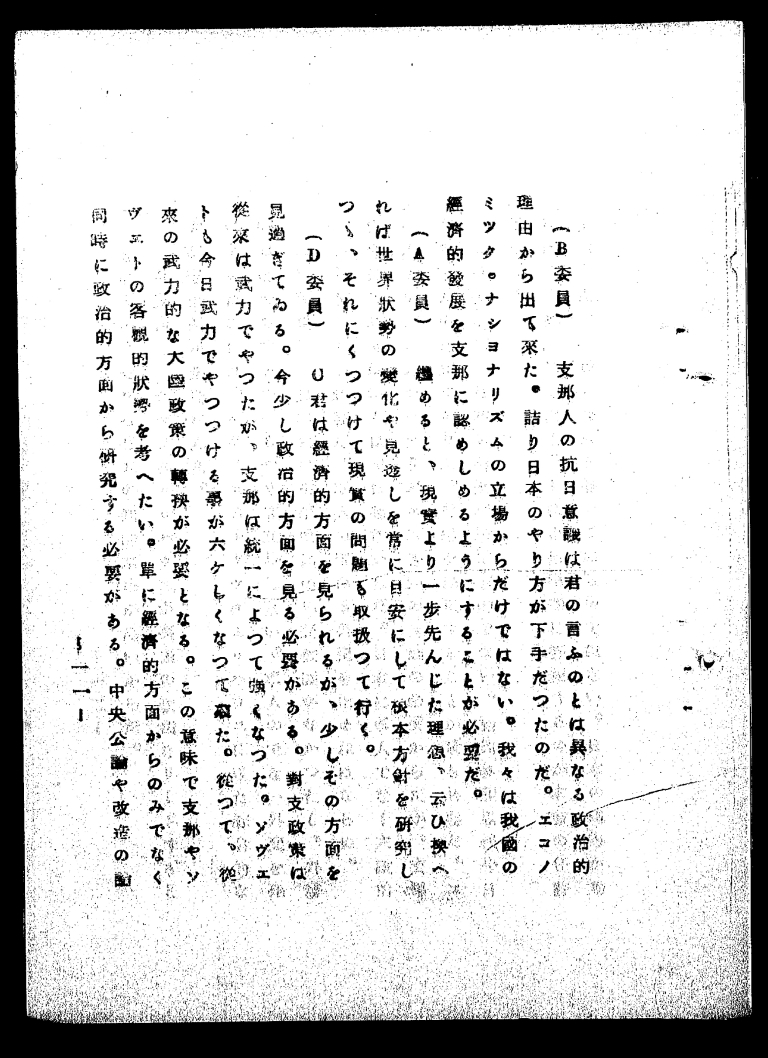 (B委員)　支那人の抗日意識は君の言ふのとは異なる政治的
理由から出て來た。詰り日本のやり方が下手だつたのだ。エコノ
ミツク。ナシヨナリズムの立場からだけではない。我々は我國の
經濟的發展を支那に認めしめるようにすることが必要だ。
(A委員)　纏めると、現實より一步先んじた理念、云ひ換へ
れば世界狀勢の變化や見透しを常に目安にして根本方針を硏究し
つゝ、それにくつつけて現實の問題も取扱つて行く。
(D委員)　C君は經濟的方面を見られるが、少しその方面を
見過ぎてゐる。今少し政治的方面を見る必要がある。對支政策は
從來は武力でやつたが、支那は統一によつて強くなつた。ソヴエ
トも今日武力でやつつける事が六ケしくなつて來た。從つて、從
來の武力的な大陸政策の轉換が必要となる。この意味で支那やソ
ヴエトの客觀的狀勢を考へたい。單に經濟的方面からのみでなく
同時に政治的方面から硏究する必要がある。中央公論や改造の論
— 一一 —